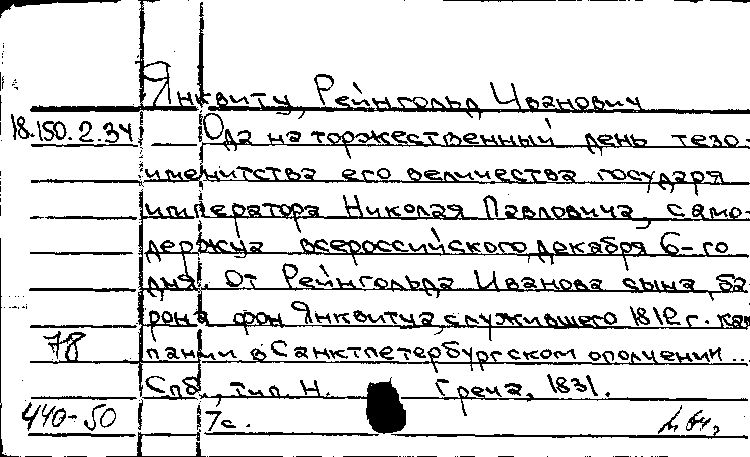 Янквиту, Рейнгольд Иванович
18.150.2.34 Ода на торжественный день тезо-
именитства его величества государя
императора Николая Павловича, само-
держца всероссийского, декабря 6-го
дня. От Рейнгольда Иванова сына, ба-
рона фон Янквитца, служившего 1812 г. кам
78 пании в Санктпетербургском ополчении...
Спб., тип. Н. Греча, 1831.
440-50 7с.